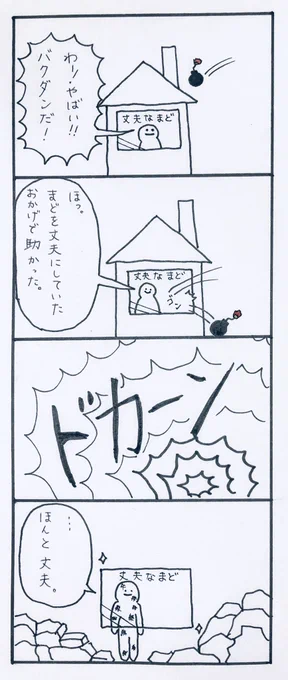 わー、やばい!!
バクダンだ!
丈夫なまど
ほっ。
まどを丈夫にしていた
おかげで助かった。
丈夫なまど
ゴン
ドカーン
…
ほんと丈夫。
丈夫なまど